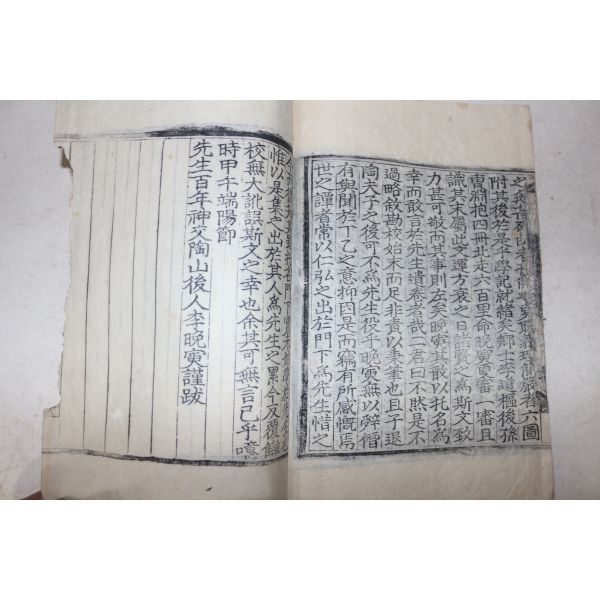 附其後於是乎學記就緒矣鄕士李道樞後孫
曹灝抱四冊北走六百里命晩寅更審一番且
識其末屬此文運方衰之日詣賢之爲斯文致
力甚可敬而其事則左矣晩寅其敢以托名爲
幸而敢言於先生遺卷者哉二君曰不然是不
過略敘勘校始末而足非責以秉筆也且子退
陶夫子之後可不爲先生役乎晩寅無以辭僭
有與聞於丁乙之意抑因是而竊有所感慨焉
世之謹者常以仁弘之出於門下爲先生惜之
惟以是集之出於其人爲先生之累今反覆讎
校無大訛誤斯文之幸也余其可無言已乎噫
時甲午端陽節
先生百年神交陶山後人李晩寅謹跋